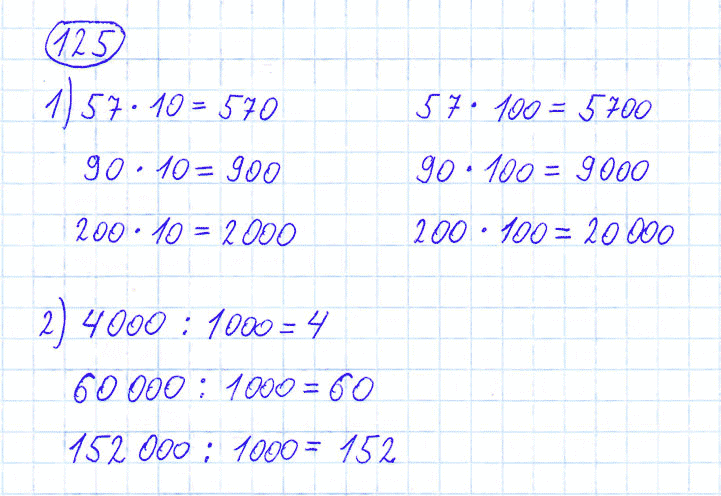 125
1) 57 · 10 = 570 57 · 100 = 5700
90 · 10 = 900 90 · 100 = 9000
200 · 10 = 2000 200 · 100 = 20 000
2) 4000 : 1000 = 4
60 000 : 1000 = 60
152 000 : 1000 = 152